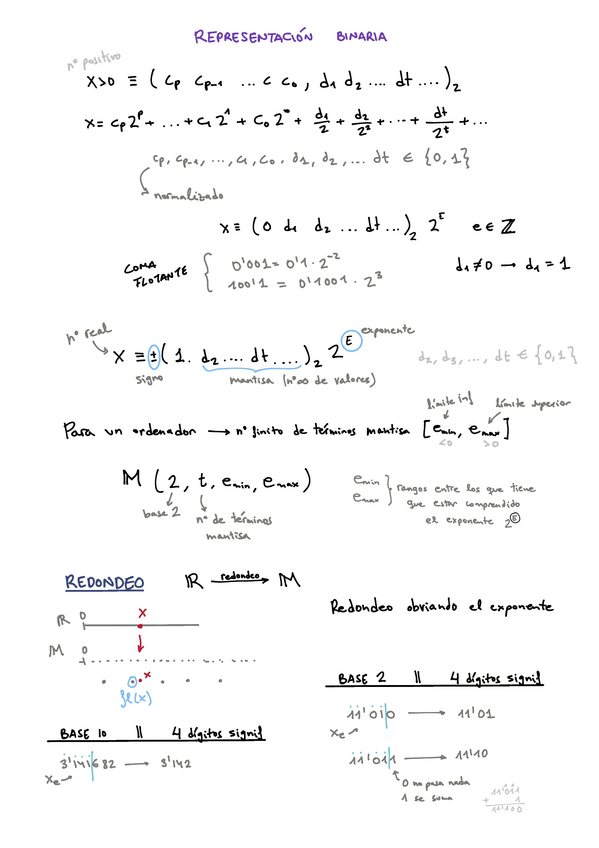 REPRESENTACIÓN BINARIA
nº positivo
x>0 ≡ ( cp cp-1 ... c c0 , d1 d2 .... dt .... )2
x = cp2^p + ... + c1 2^1 + c0 2^0 + d1/2 + d2/2^2 + ... + dt/2^t + ...
cp, cp-1, ..., c1, c0, d1, d2, ... dt ∈ {0,1}
normalizado
x ≡ (0 d1 d2 ... dt ...)2 2^E e ∈ ℤ
COMA FLOTANTE { 0'001 = 0'1 · 2^-2
100'1 = 0'1001 · 2^3
d1 ≠ 0 → d1 = 1
nº real
exponente
x ≡ ± (1. d2 .... dt ....)2 2^E
d2, d3, ..., dt ∈ {0,1}
signo
mantisa (nº ∞ de valores)
límite inf
límite superior
Para un ordenador → nº finito de términos mantisa [emin, emax]
<0 >0
M (2, t, emin, emax)
base 2
nº de términos
mantisa
emin
emax } rangos entre los que tiene
que estar comprendido
el exponente 2^E
REDONDEO
ℝ redondeo → M
Redondeo obviando el exponente
ℝ 0 x
M 0
x
fl(x)
BASE 10 || 4 dígitos signif
3'141682 → 3'142
xe
BASE 2 || 4 dígitos signif
11'010 → 11'01
xe
11'011 → 11'10
0 no pasa nada
1 se suma
11'011
+ 1
11'100